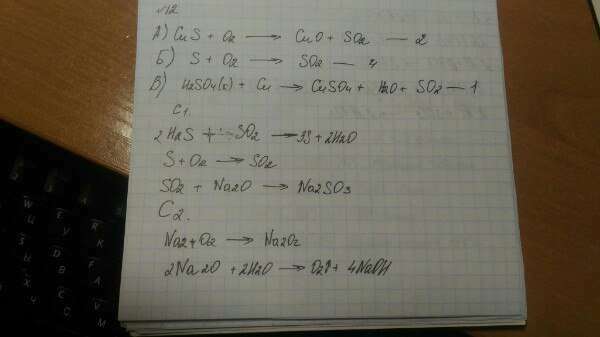 №12
А) CuS + O2 → CuO + SO2 — 2
Б) S + O2 → SO2 — 4
В) H2SO4(к) + Cu → CuSO4 + H2O + SO2 — 1
С1.
2H2S + SO2 → 3S + 2H2O
S + O2 → SO2
SO2 + Na2O → Na2SO3
С2.
Na2 + O2 → Na2O2
2Na2O + 2H2O → O2↑ + 4NaOH